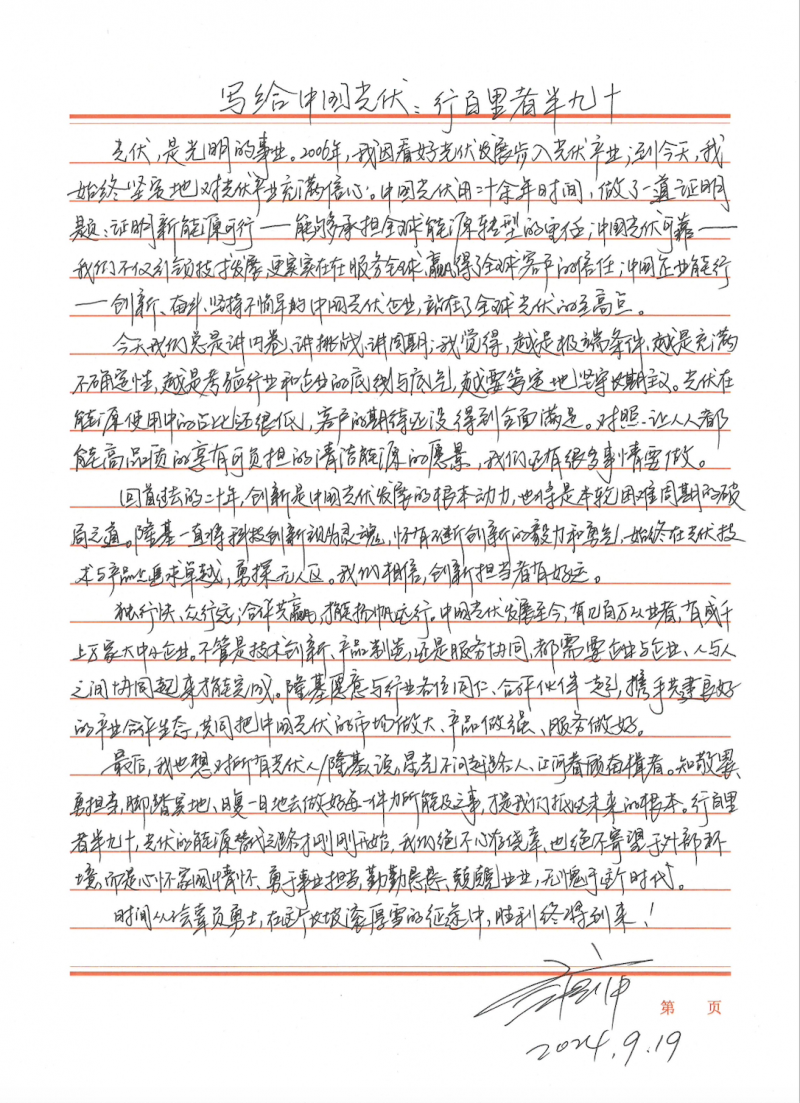 写给中国光伏：行百里者半九十
光伏，是光明的事业。2006年，我因看好光伏发展步入光伏产业；到今天，我
始终坚定地对光伏产业充满信心。中国光伏用二十余年时间，做了一道证明
题：证明新能源可行——能够承担全球能源转型的重任；中国光伏可靠——
我们不仅引领技术发展，更实实在在服务全球、赢得了全球客户的信任；中国企业能行
——创新、奋斗、坚持不懈早的中国光伏企业，站在了全球光伏的至高点。
今天我们总是讲内卷、讲挑战、讲周期；我觉得，越是极端条件、越是充满
不确定性，越是考验行业和企业的底线与底气，越要笃定地坚守长期主义。光伏在
能源使用中的占比还很低，客户的期待还没得到全面满足。对照“让人人都
能高品质的享有可负担的清洁能源”的愿景，我们还有很多事情要做。
回首过去的二十年，创新是中国光伏发展的根本动力，也将是本轮困难周期的破
局之道。隆基一直将科技创新视为灵魂，怀有不断创新的毅力和勇气，始终在光伏技
术与产品上追求卓越，勇探无人区。我们相信，创新担当者有好运。
独行快、众行远；合作共赢，才能扬帆远行。中国光伏发展至今，有几百万从业者，有成千
上万家大中小企业。不管是技术创新、产品制造，还是服务协同，都需要企业与企业、人与人
之间协同起来才能完成。隆基愿意与行业各位同仁、合作伙伴一起，携手共建良好
的产业合作生态，共同把中国光伏的市场做大、产品做强、服务做好。
最后，我也想对所有光伏人/隆基说，星光不问赶路人、江河眷顾奋楫者。知敬畏
勇担当，脚踏实地、日复一日地去做好每一件力所能及之事，才是我们抵达未来的根本。行百里
者半九十，光伏的能源替代之路才刚刚开始，我们绝不心存侥幸、也绝不寄望于外部环
境，而是心怀家国情怀、勇于事业担当，勤勤恳恳、兢兢业业，无愧于这新时代。
时间从不会辜负勇士，在这个长坡滚厚雪的征途中，胜利终将到来！
2024.9.19
第 页